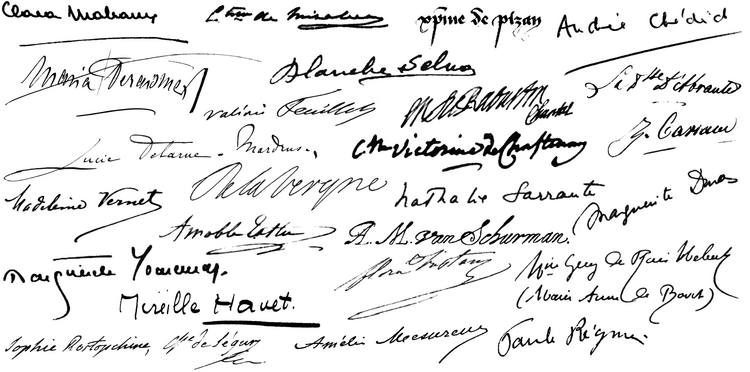 Clara Malraux
Ctesse de Mirabeau
xpine de pizan
Andrée Chédid
Maria Deraismes
Blanche Selva
Valérie Feuillet
La Dsse d'Abrantès
Lucie Delarue-Mardrus
Ctesse Victorine de Chastenay
Madeleine Vernet
Delavergne
Nathalie Sarraute
Marguerite Duras
Amable Tastu
A. M. van Schurman.
Marguerite Yourcenar.
Flora Tristan
Mireille Havet.
(Marie Anne de Bovet)
Sophie Rostopchine, Ctesse de Ségur
Amélie Mesureur
Paule Régnier